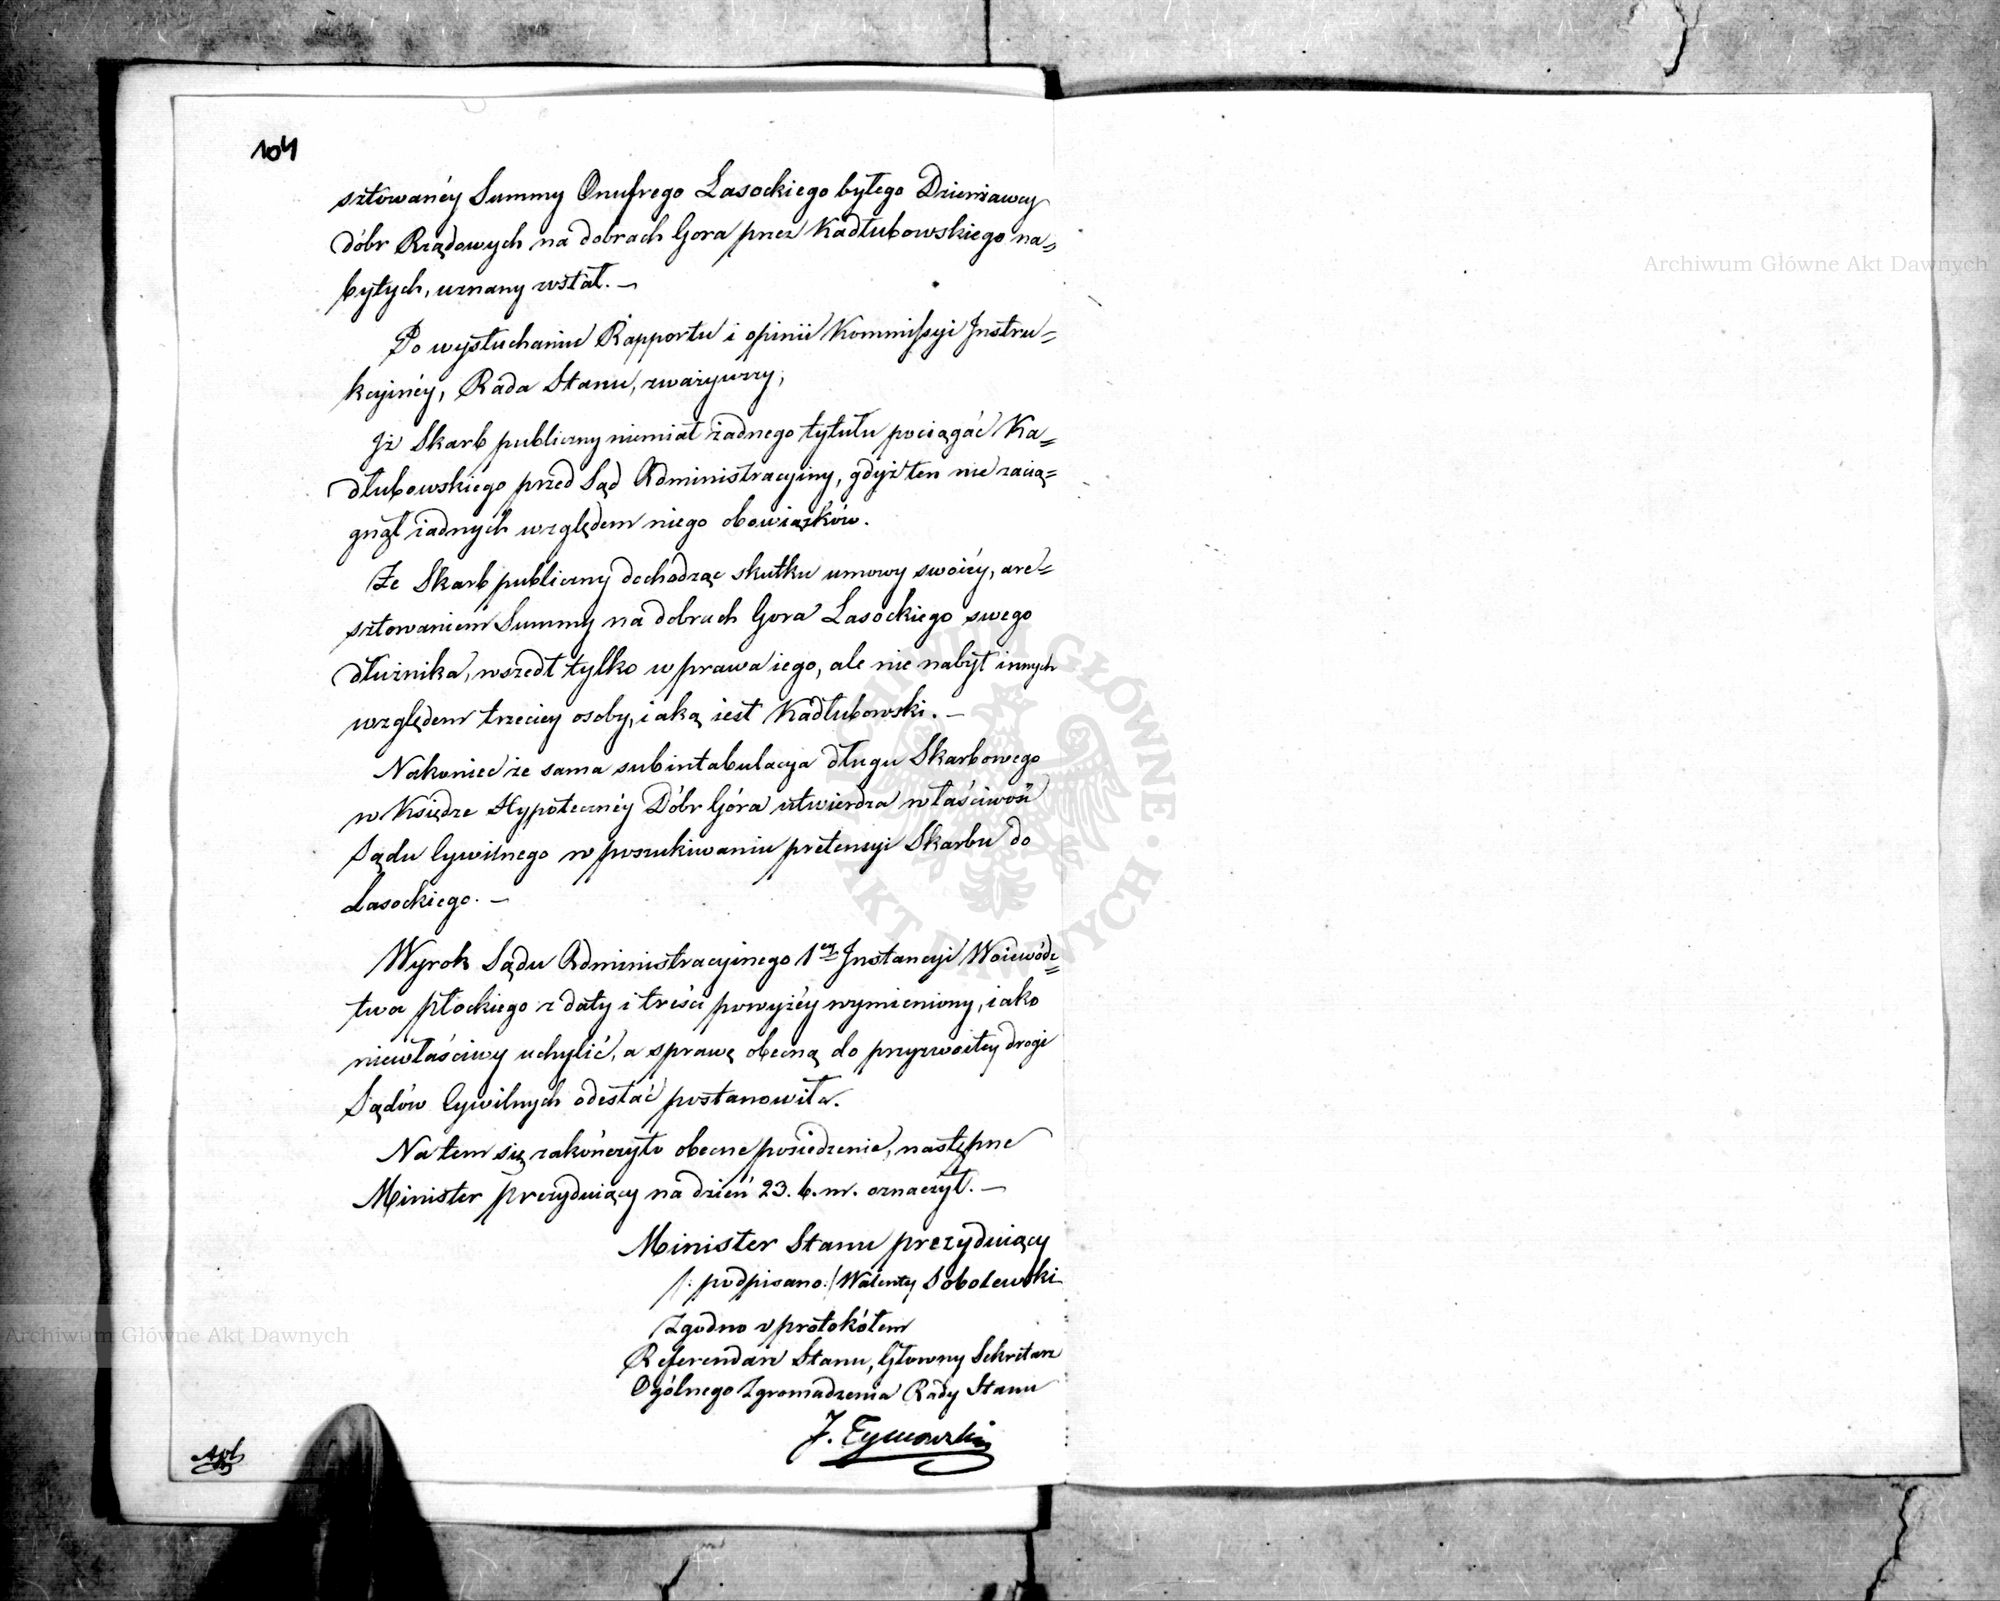 104
sztowanéy Summy Onufrego Lasockiego byłego Dzierżawcy
dóbr Rządowych na dobrach Gora przez Kadłubowskiego na=
bytych, uznany został. —
Po wysłuchaniu Rapportu i opinii Kommissyi Instru=
kcyinéy, Rada Stanu, zważywszy,
Iż Skarb publiczny niemiał żadnego tytułu pociągać Ka=
dłubowskiego przed Sąd Administracyiny, gdyż ten nie zacią=
gnął żadnych względem niego obowiązków.
Że Skarb publiczny dochodząc skutku umowy swoiéy, are=
sztowaniem Summy na dobrach Gora Lasockiego swego
dłużnika, wszedł tylko w prawa iego, ale nie nabył innych
względem trzeciey osoby, iaką iest Kadłubowski. —
Nakoniec że sama subintabulacya długu Skarbowego
w Księdze Hypotecznéy Dóbr Góra utwierdza właściwość
Sądu Cywilnego w poszukiwaniu pretensyi Skarbu do
Lasockiego. —
Wyrok Sądu Administracyinego 1ey Instancyi Woiewódz=
twa płockiego z daty i treści powyżéy wymieniony, iako
niewłaściwy uchylić, a sprawę obecną do przyzwoitey drogi
Sądów Cywilnych odesłać postanowiła.
Na tem się zakończyło obecne posiedzenie, następne
Minister prezyduiący na dzień 23. b. m. oznaczył. —
Minister Stanu prezyduiący
/: podpisano :/ Walenty Sobolewski
Zgodno z protokółem
Referendarz Stanu, Głowny Sekretarz
Ogólnego Zgromadzenia Rady Stanu
J. Tymowski
Archiwum Główne Akt Dawnych
Archiwum Główne Akt Dawnych
ARCHIWUM GŁÓWNE AKT DAWNYCH